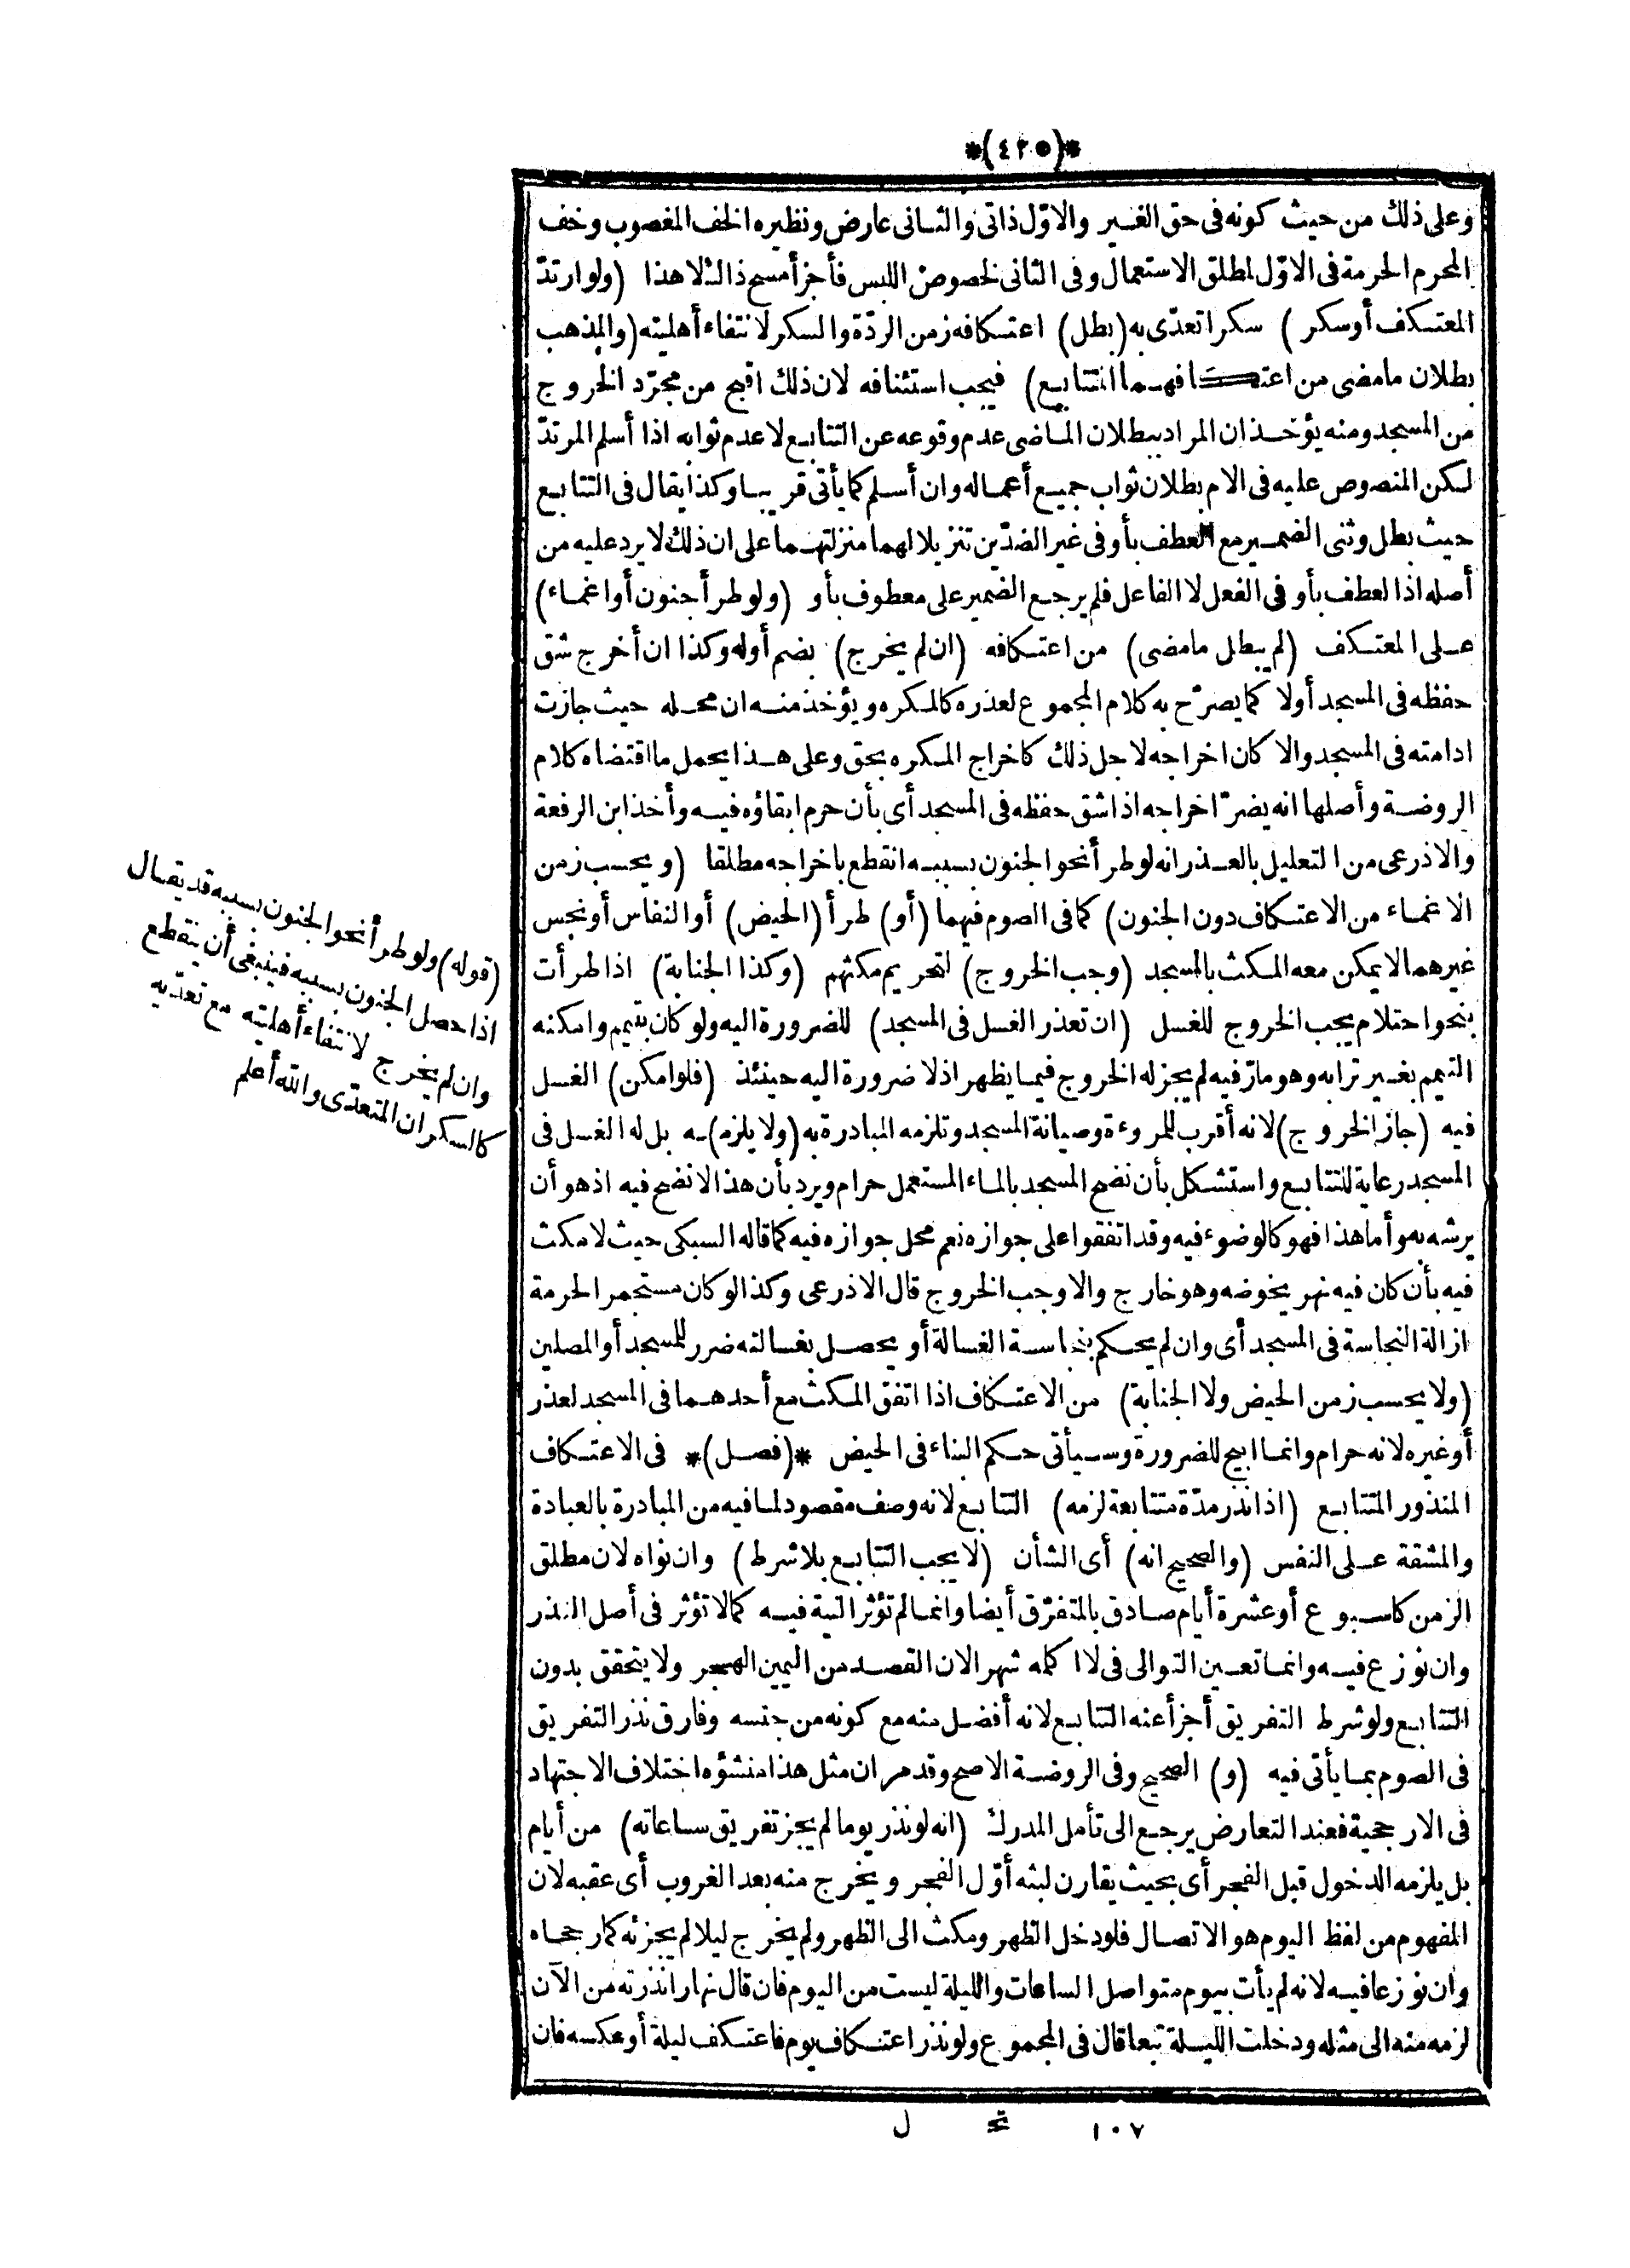 *(٤٢٥)*
وعلى ذلك من حيث كونه فى حق الغير والاوّل ذاتى والثانى عارض ونظيره الخف المغصوب وخف
المحرم الحرمة فى الاوّل لمطلق الاستعمال وفى الثانى لخصوص اللبس فأجزأ مسح ذالـ لا هذا (ولو ارتدّ
المعتكف أو سكر) سكرا تعدّى به (بطل) اعتكافه زمن الردّة والسكر لانتفاء أهليته (والمذهب
بطلان ما مضى من اعتكافهما المتتابع) فيجب استئنافه لان ذلك اقبح من مجرّد الخروج
من المسجد ومنه يؤخذ ان المراد ببطلان الماضى عدم وقوعه عن التتابع لا عدم ثوابه اذا أسلم المرتدّ
لكن المنصوص عليه فى الام بطلان ثواب جميع أعماله وان أسلم كما يأتى قريبا وكذا يقال فى التتابع
حيث بطل وثنى الضمير مع العطف بأو فى غير الضدّين تنزيلا لهما منزلتهما على ان ذلك لا يرد عليه من
أصله اذ العطف بأو فى الفعل لا الفاعل فلم يرجع الضمير على معطوف بأو (ولو طرأ جنون أو اغماء)
على المعتكف (لم يبطل ما مضى) من اعتكافه (ان لم يخرج) بضم أوله وكذا ان أخرج شق
حفظه فى المسجد أولا كما يصرّح به كلام المجموع لعذره كالمكره ويؤخذ منه ان محله حيث جازت
ادامته فى المسجد والا كان اخراجه لاجل ذلك كاخراج المكره بحق وعلى هذا يحمل ما اقتضاه كلام
الروضة وأصلها انه يضرّ اخراجه اذا شق حفظه فى المسجد أى بأن حرم ابقاؤه فيه وأخذ ابن الرفعة
والاذرعى من التعليل بالعذر انه لو طرأ نحو الجنون بسببه انقطع باخراجه مطلقا (ويحسب زمن
الاغماء من الاعتكاف دون الجنون) كما فى الصوم فيهما (أو) طرأ (الحيض) أو النفاس أو نجس
غيرهما لا يمكن معه المكث بالمسجد (وجب الخروج) لتحريم مكثهم (وكذا الجنابة) اذا طرأت
بنحو احتلام يجب الخروج للغسل (ان تعذر الغسل فى المسجد) للضرورة اليه ولو كان بتيمم وامكنه
التيمم بغير ترابه وهو مارّ فيه لم يجز له الخروج فيما يظهر اذ لا ضرورة اليه حينئذ (فلو امكن) الغسل
فيه (جاز الخروج) لانه أقرب للمروءة وصيانة المسجد وتلزمه المبادرة به (ولا يلزم)ـه بل له الغسل فى
المسجد رعاية للتتابع واستشكل بأن نضح المسجد بالماء المستعمل حرام ويرد بأن هذا لا نضح فيه اذ هو أن
يرشه به وأما هذا فهو كالوضوء فيه وقد اتفقوا على جوازه نعم محل جوازه فيه كما قاله السبكى حيث لا مكث
فيه بأن كان فيه نهر يخوضه وهو خارج والا وجب الخروج قال الاذرعى وكذا لو كان مستجمرا لحرمة
ازالة النجاسة فى المسجد أى وان لم يحكم بنجاسة الغسالة أو يحصل بغسالته ضرر للمسجد أو المصلين
(ولا يحسب زمن الحيض ولا الجنابة) من الاعتكاف اذا اتفق المكث مع أحدهما فى المسجد لعذر
أو غيره لانه حرام وانما ابيح للضرورة وسيأتى حكم البناء فى الحيض *(فصل)* فى الاعتكاف
المنذور المتتابع (اذا نذر مدّة متتابعة لزمه) التتابع لانه وصف مقصود لما فيه من المبادرة بالعبادة
والمشقة على النفس (والصحيح انه) أى الشأن (لا يجب التتابع بلا شرط) وان نواه لان مطلق
الزمن كاسبوع أو عشرة أيام صادق بالمتفرّق أيضا وانما لم تؤثر النية فيه كما لا تؤثر فى أصل النذر
وان نوزع فيه وانما تعين التوالى فى لا اكلمه شهرا لان القصد من اليمين الهجر ولا يتحقق بدون
التتابع ولو شرط التفريق أجزأ عنه التتابع لانه أفضل منه مع كونه من جنسه وفارق نذر التفريق
فى الصوم بما يأتى فيه (و) الصحيح وفى الروضة الاصح وقد مر ان مثل هذا منشؤه اختلاف الاجتهاد
فى الارجحية فعند التعارض يرجع الى تأمل المدرك (انه لو نذر يوما لم يجز تفريق ساعاته) من أيام
بل يلزمه الدخول قبل الفجر أى بحيث يقارن لبثه أوّل الفجر ويخرج منه بعد الغروب أى عقبه لان
المفهوم من لفظ اليوم هو الاتصال فلو دخل الظهر ومكث الى الظهر ولم يخرج ليلا لم يجزئه كما رجحاه
وان نوزعا فيه لانه لم يأت بيوم متواصل الساعات والليلة ليست من اليوم فان قال نهارا نذرته من الآن
لزمه منه الى مثله ودخلت الليلة تبعا قال فى المجموع ولو نذر اعتكاف يوم فاعتكف ليلة أو عكسه فان
١٠٧ تح ل
(قوله) ولو طرأ نحو الجنون بسببه قد يقال
اذا حصل الجنون بسببه فينبغى أن ينقطع
وان لم يخرج لانتفاء أهليته مع تعدّيه
كالسكران المتعدّى والله أعلم